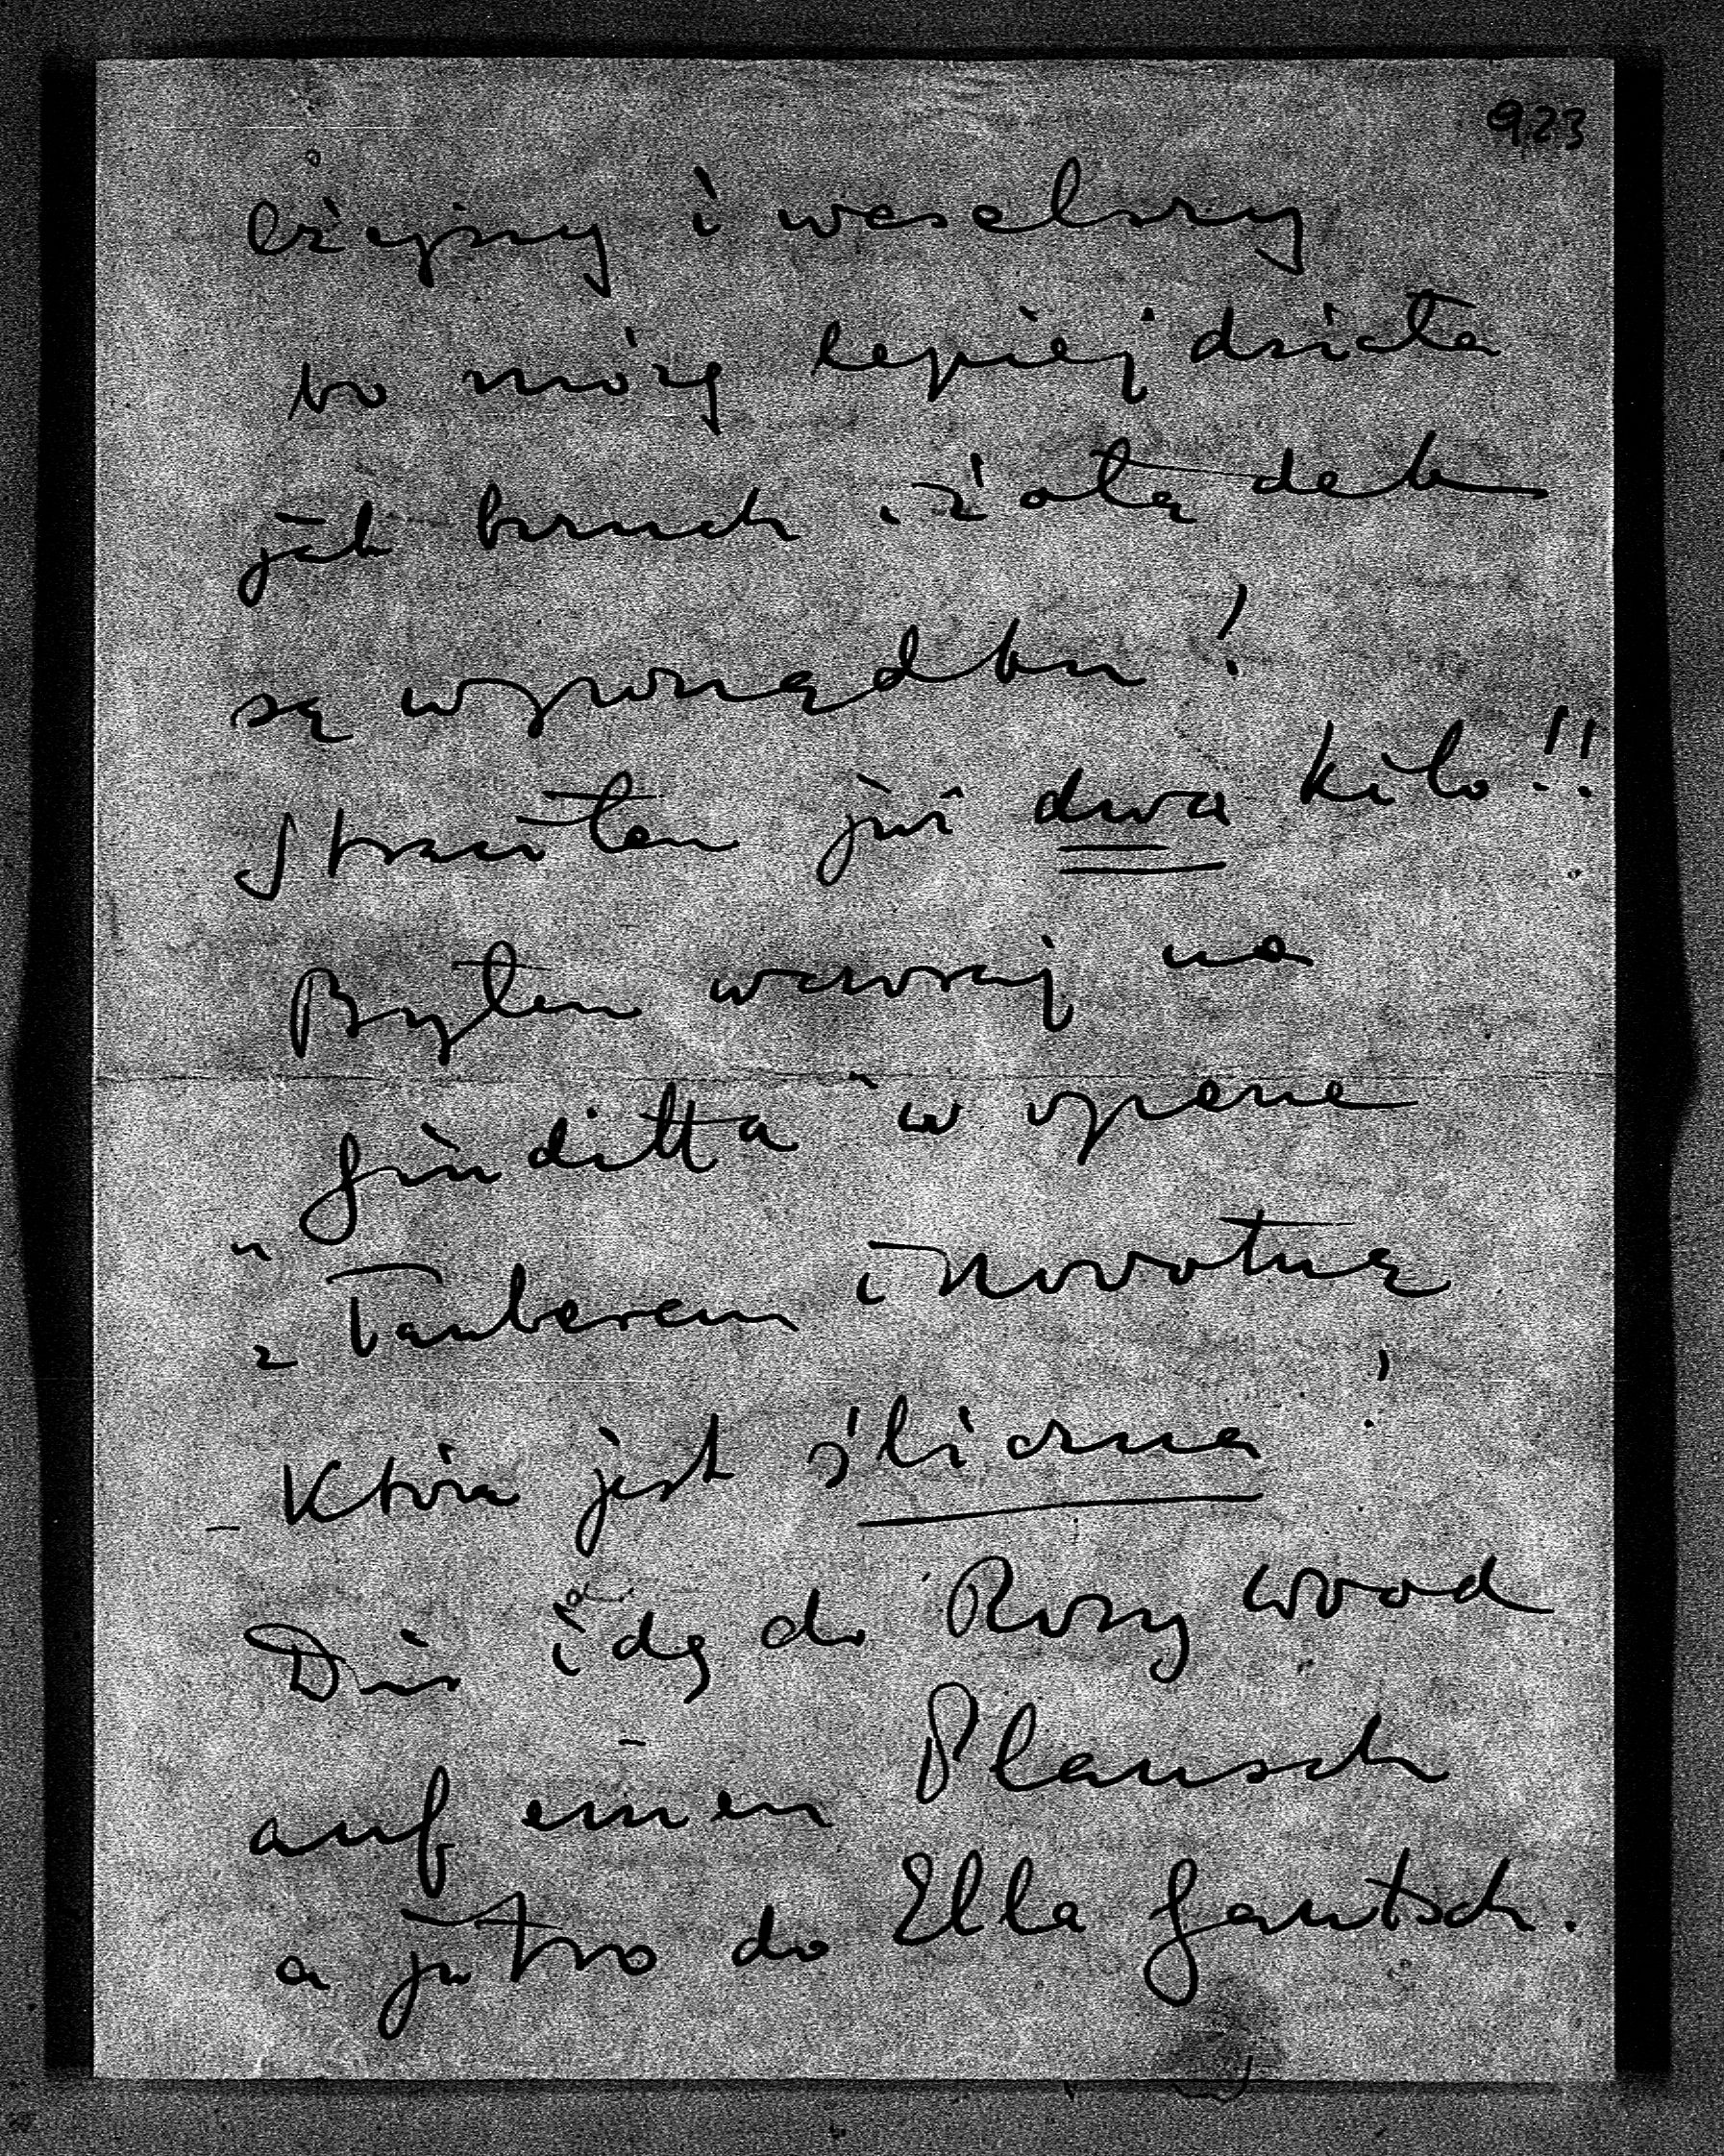 923
lżejszy i weselszy
bo mózg lepiej działa
jak brzuch i żołądek
są w porządku!
Straciłem już dwa kilo!!
Byłem wczoraj na
"Giuditta" w operze
z Tauberem i Novotną
która jest śliczna!
Dziś idę do Rosy Wood
auf einen Plausch
a jutro do Ella Gautsch.